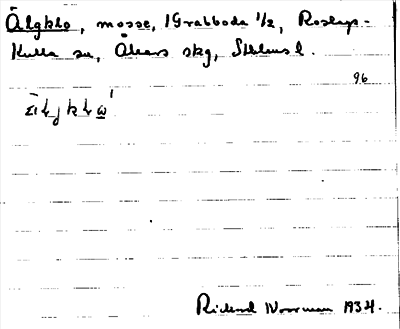 Älgklo, mosse, Grabboda 1/2, Roslags-
Kulla sn, Åkers skg, Sthlms l.
96
Richard Norrman 1934.